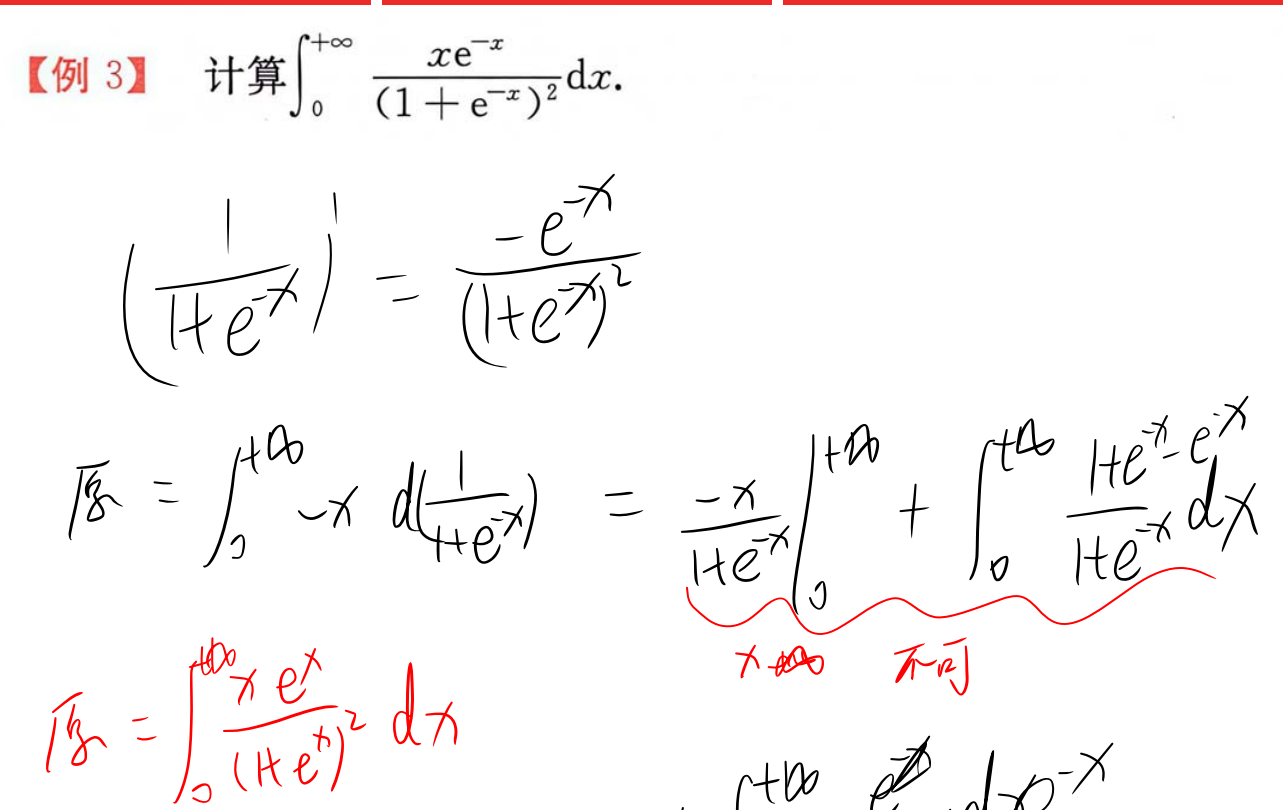 【例 3】 计算∫₀^{+∞} xe^{-x}/(1+e^{-x})² dx.
(1/(1+e^{-x}))' = -e^{-x}/(1+e^{-x})²
原 = ∫₀^{+∞} -x d(1/(1+e^{-x})) = -x/(1+e^{-x}) |₀^{+∞} + ∫₀^{+∞} (1+e^{-x}-e^{-x})/(1+e^{-x}) dx
不可
原 = ∫₀^{+∞} xe^{x}/(1+e^{x})² dx